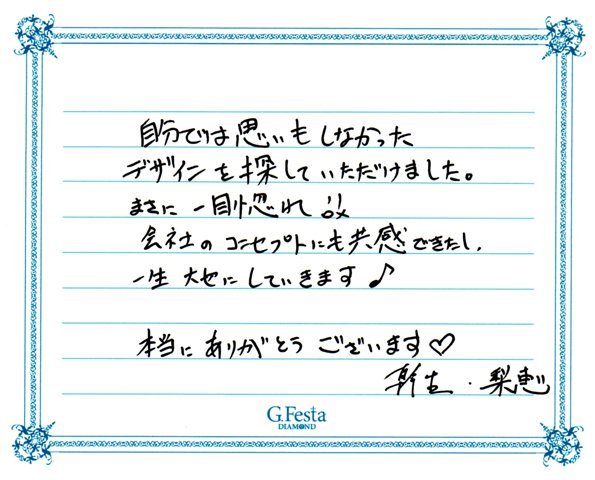 自分では思いもしなかった
デザインを探していただけました。
まさに一目惚れ!!
会社のコンセプトにも共感できたし、
一生大切にしていきます♪
本当にありがとうございます♡
幹生・梨恵
G.Festa
DIAMOND